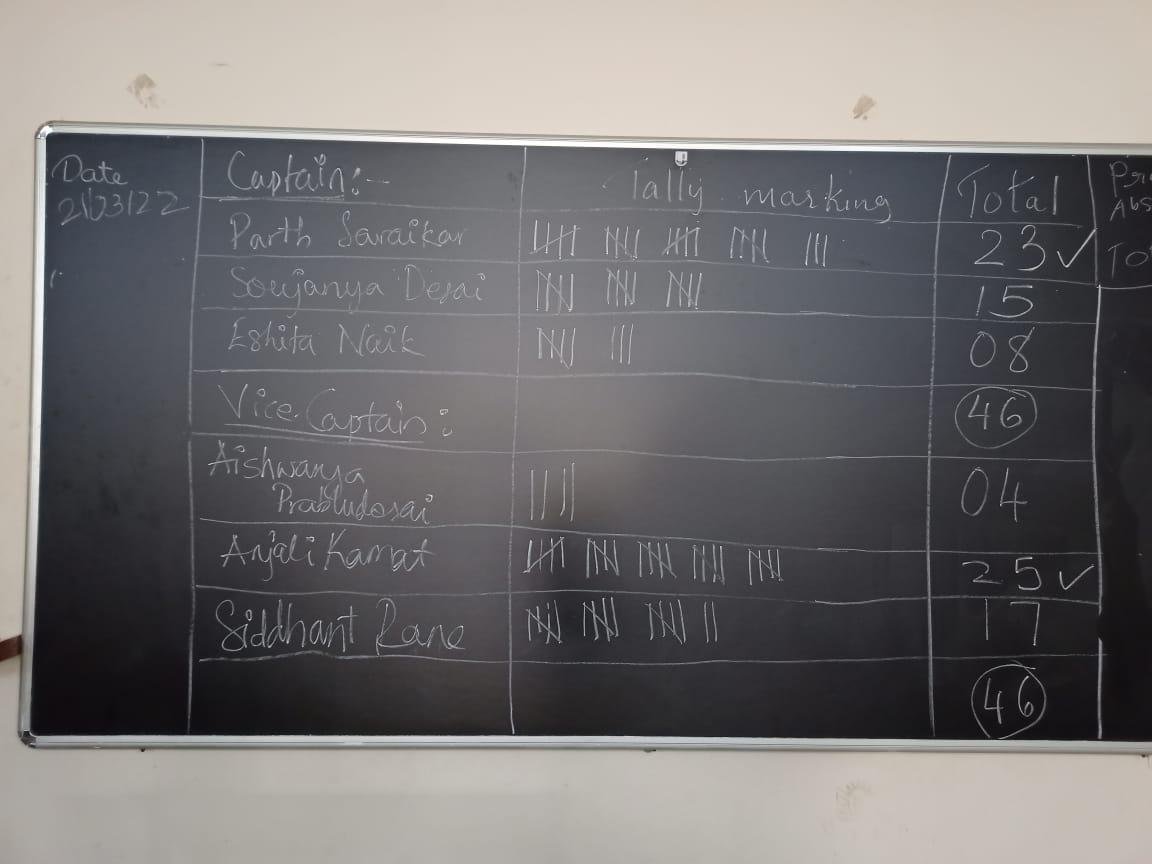 Date
21/03/22
Captain:-
Tally marking
Total
Parth Saraikar
23✓
Soujanya Desai
15
Eshita Naik
08
Vice Captain:
46
Aishwarya
Prabhudesai
04
Anjali Kamat
25✓
Siddhant Rane
17
46